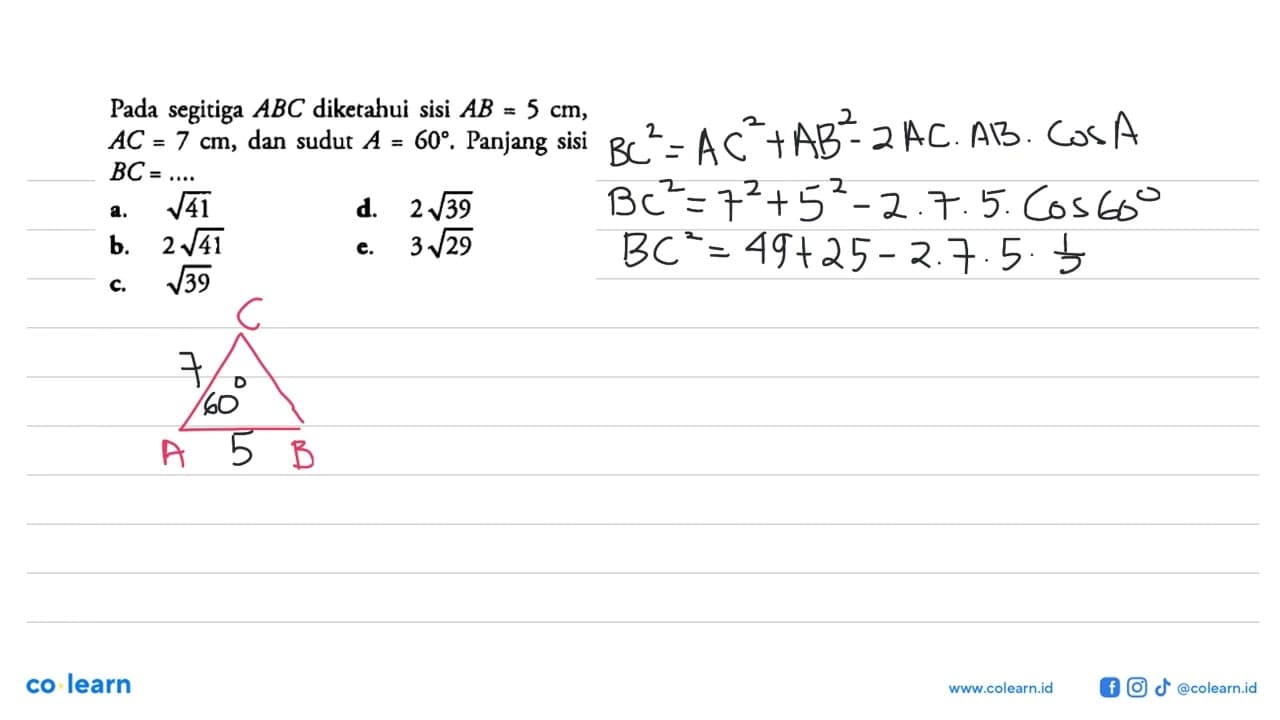 Pada segitiga ABC diketahui sisi AB = 5 cm,
AC = 7 cm, dan sudut A = 60°. Panjang sisi
BC = ....
a. √41
b. 2√41
c. √39
d. 2√39
e. 3√29
BC² = AC² + AB² - 2 AC. AB. Cos A
BC² = 7² + 5² - 2.7.5. Cos 60°
BC² = 49 + 25 - 2.7.5. 1/2
C
7
60°
A 5 B
co learn
www.colearn.id
@colearn.id